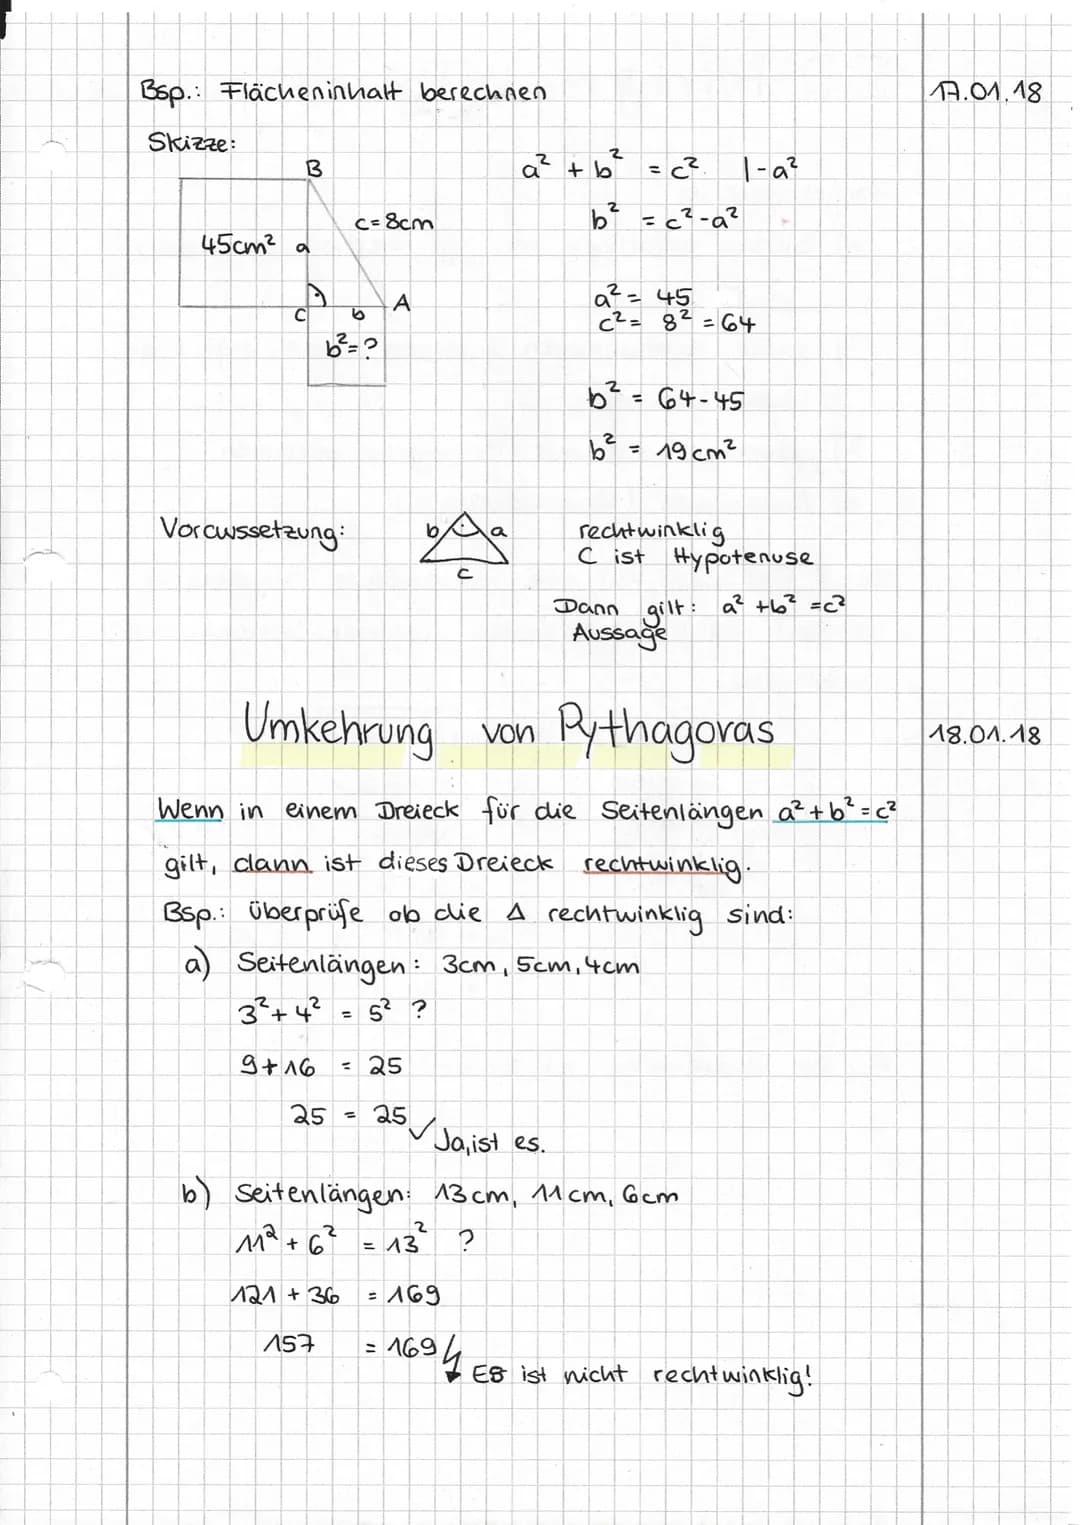 Bsp.: Flächeninhalt berechnen 17.01.18
Skizze:
B
a² + b² = c² | - a²
c = 8cm
b² = c² - a²
45cm² a
A
a² = 45
c b
c² = 8² = 64
b² = ?
b² = 64 - 45
b² = 19 cm²
Voraussetzung: b a rechtwinklig
c C ist Hypotenuse
Dann gilt: a² + b² = c²
Aussage
Umkehrung von Pythagoras 18.01.18
Wenn in einem Dreieck für die Seitenlängen a² + b² = c²
gilt, dann ist dieses Dreieck rechtwinklig.
Bsp.: Überprüfe ob die Δ rechtwinklig sind:
a) Seitenlängen: 3cm, 5cm, 4cm
3² + 4² = 5² ?
9 + 16 = 25
25 = 25 ✓
Ja, ist es.
b) Seitenlängen: 13cm, 11cm, 6cm
11² + 6² = 13² ?
121 + 36 = 169
157 = 169
Es ist nicht rechtwinklig!